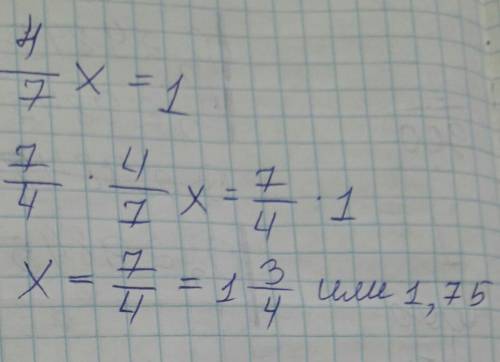 4/7 x = 1
7/4 · 4/7 x = 7/4 · 1
x = 7/4 = 1 3/4 или 1,75